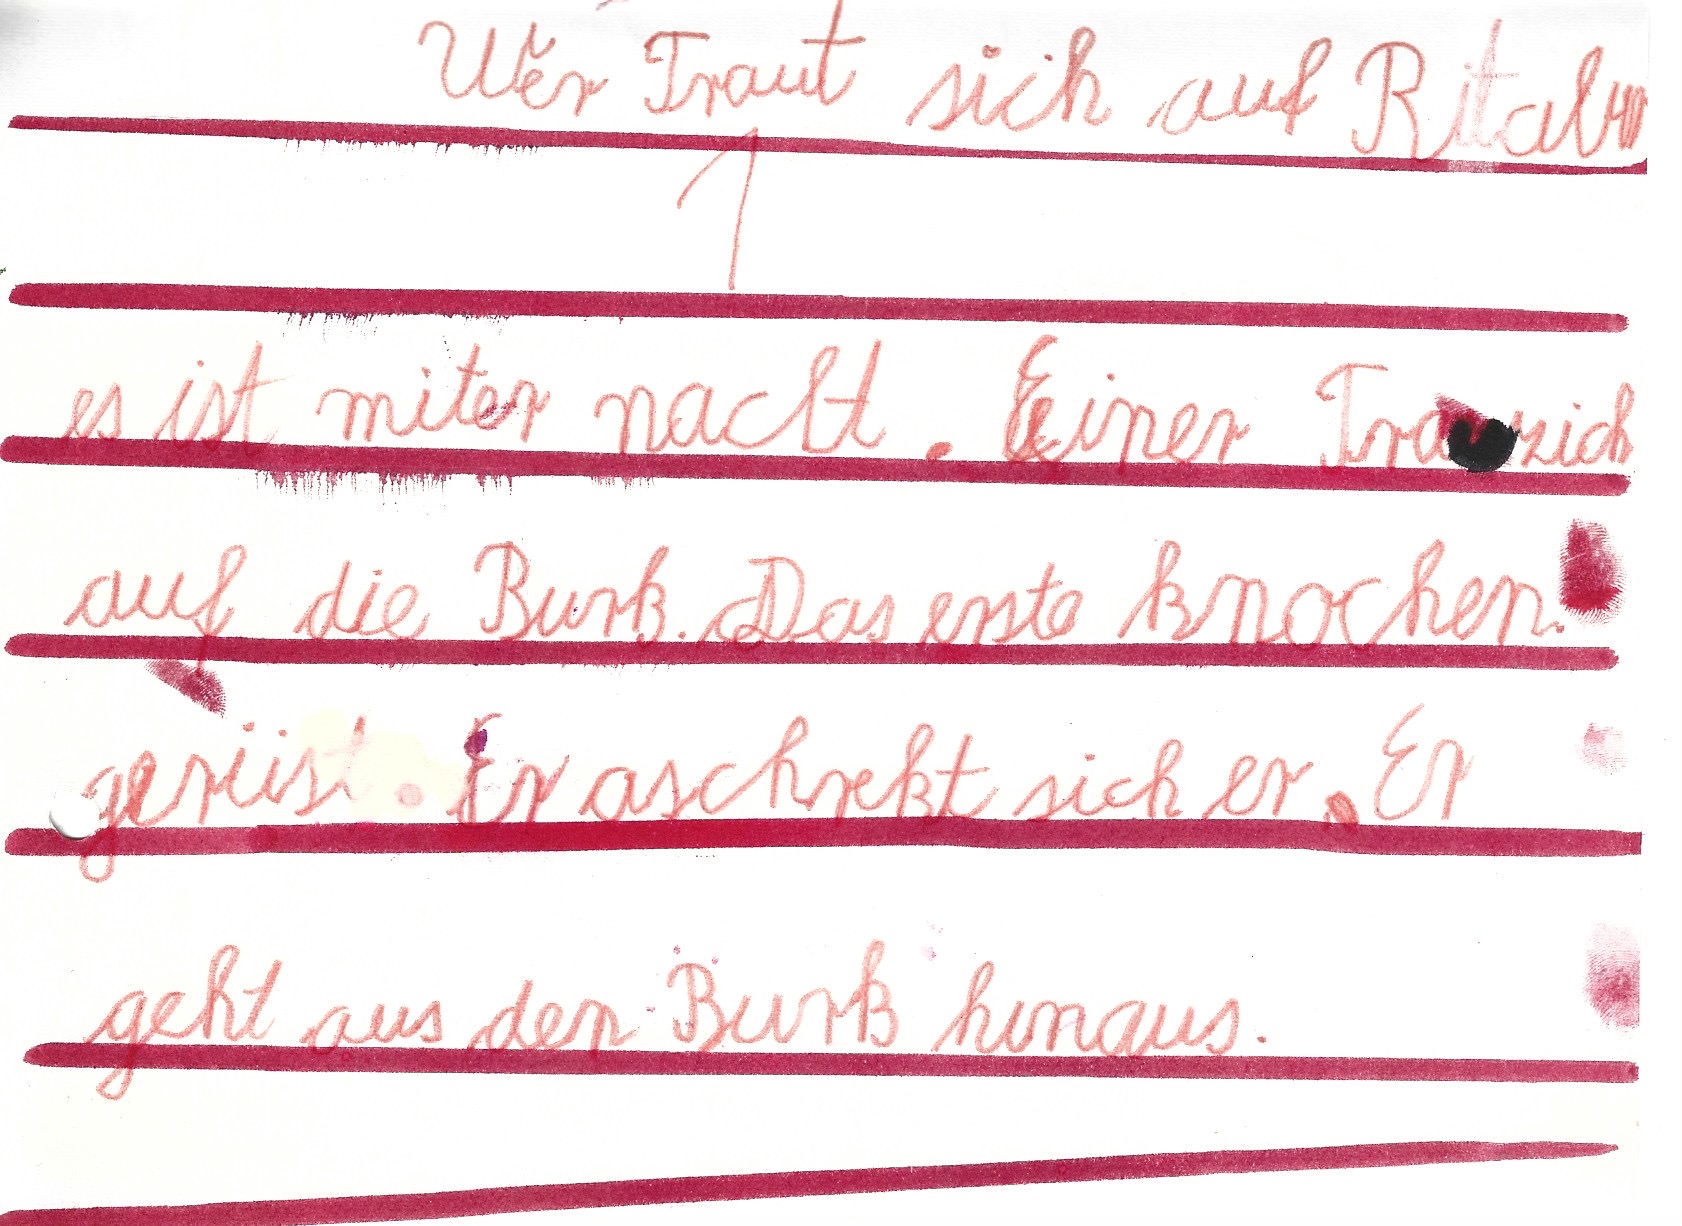 Wer Traut sich auf
1
es ist miter nacht. Einer sich
auf die Burk. Das erste knochen.
gerüist. Er aschrekt sich er. Er
geht aus der Burk hinaus.